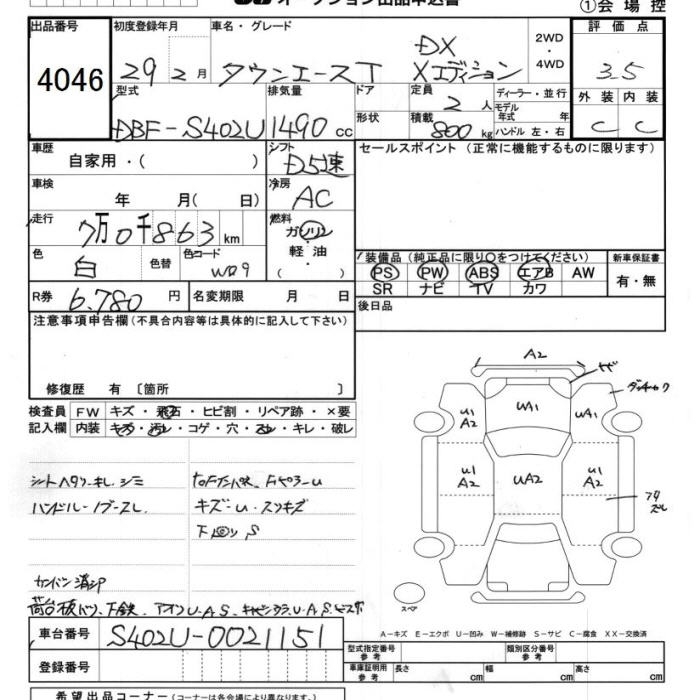 オークション出品申込書
①会場控
出品番号 初度登録年月 車名・グレード 2WD・4WD 評価点
4046 29年 2月 タウンエースT DX Xエディション 3.5
型式 排気量 ドア 定員 ディーラー・並行 外装 内装
DBF-S402U 1490cc 形状 2人 モデル年式 年 C C
積載 800kg ハンドル 左・右
車歴 シフト セールスポイント (正常に機能するものに限ります)
自家用・( ) D5速
車検 冷房
年 月( 日) AC
走行 燃料
7万0千863km ガソリン・軽油・( )
色 色替 色コード 装備品(純正品に限り○をつけてください) 新車保証書
白 W09 PS PW ABS エアB AW 有・無
SR ナビ TV カワ
R券 6.780円 名変期限 月 日 後日品
注意事項申告欄(不具合内容等は具体的に記入して下さい)
修復歴 有 〔箇所 〕
検査員記入欄 FW キズ・飛石・ヒビ割・リペア跡・×要
内装 キズ・汚レ・コゲ・穴・スレ・キレ・破レ
シートヘタリ・キレ、シミ
ハンドル・ノブースレ
キズ・U・スリキズ
下回りS
カンバン消シ口
S402U-0021151
車台番号
登録番号
A2
UA1
U1 A2
UA1
U1 A2
UA2
U1 A2
スペア
A-キズ E-エクボ U-凹み W-補修跡 S-サビ C-腐食 XX-交換済
型式指定番号 参考 類別区分番号 参考
車庫証明用 参考 長さ cm 幅 cm 高さ cm
希望出品コーナー(コーナーは各会場により異なります。)